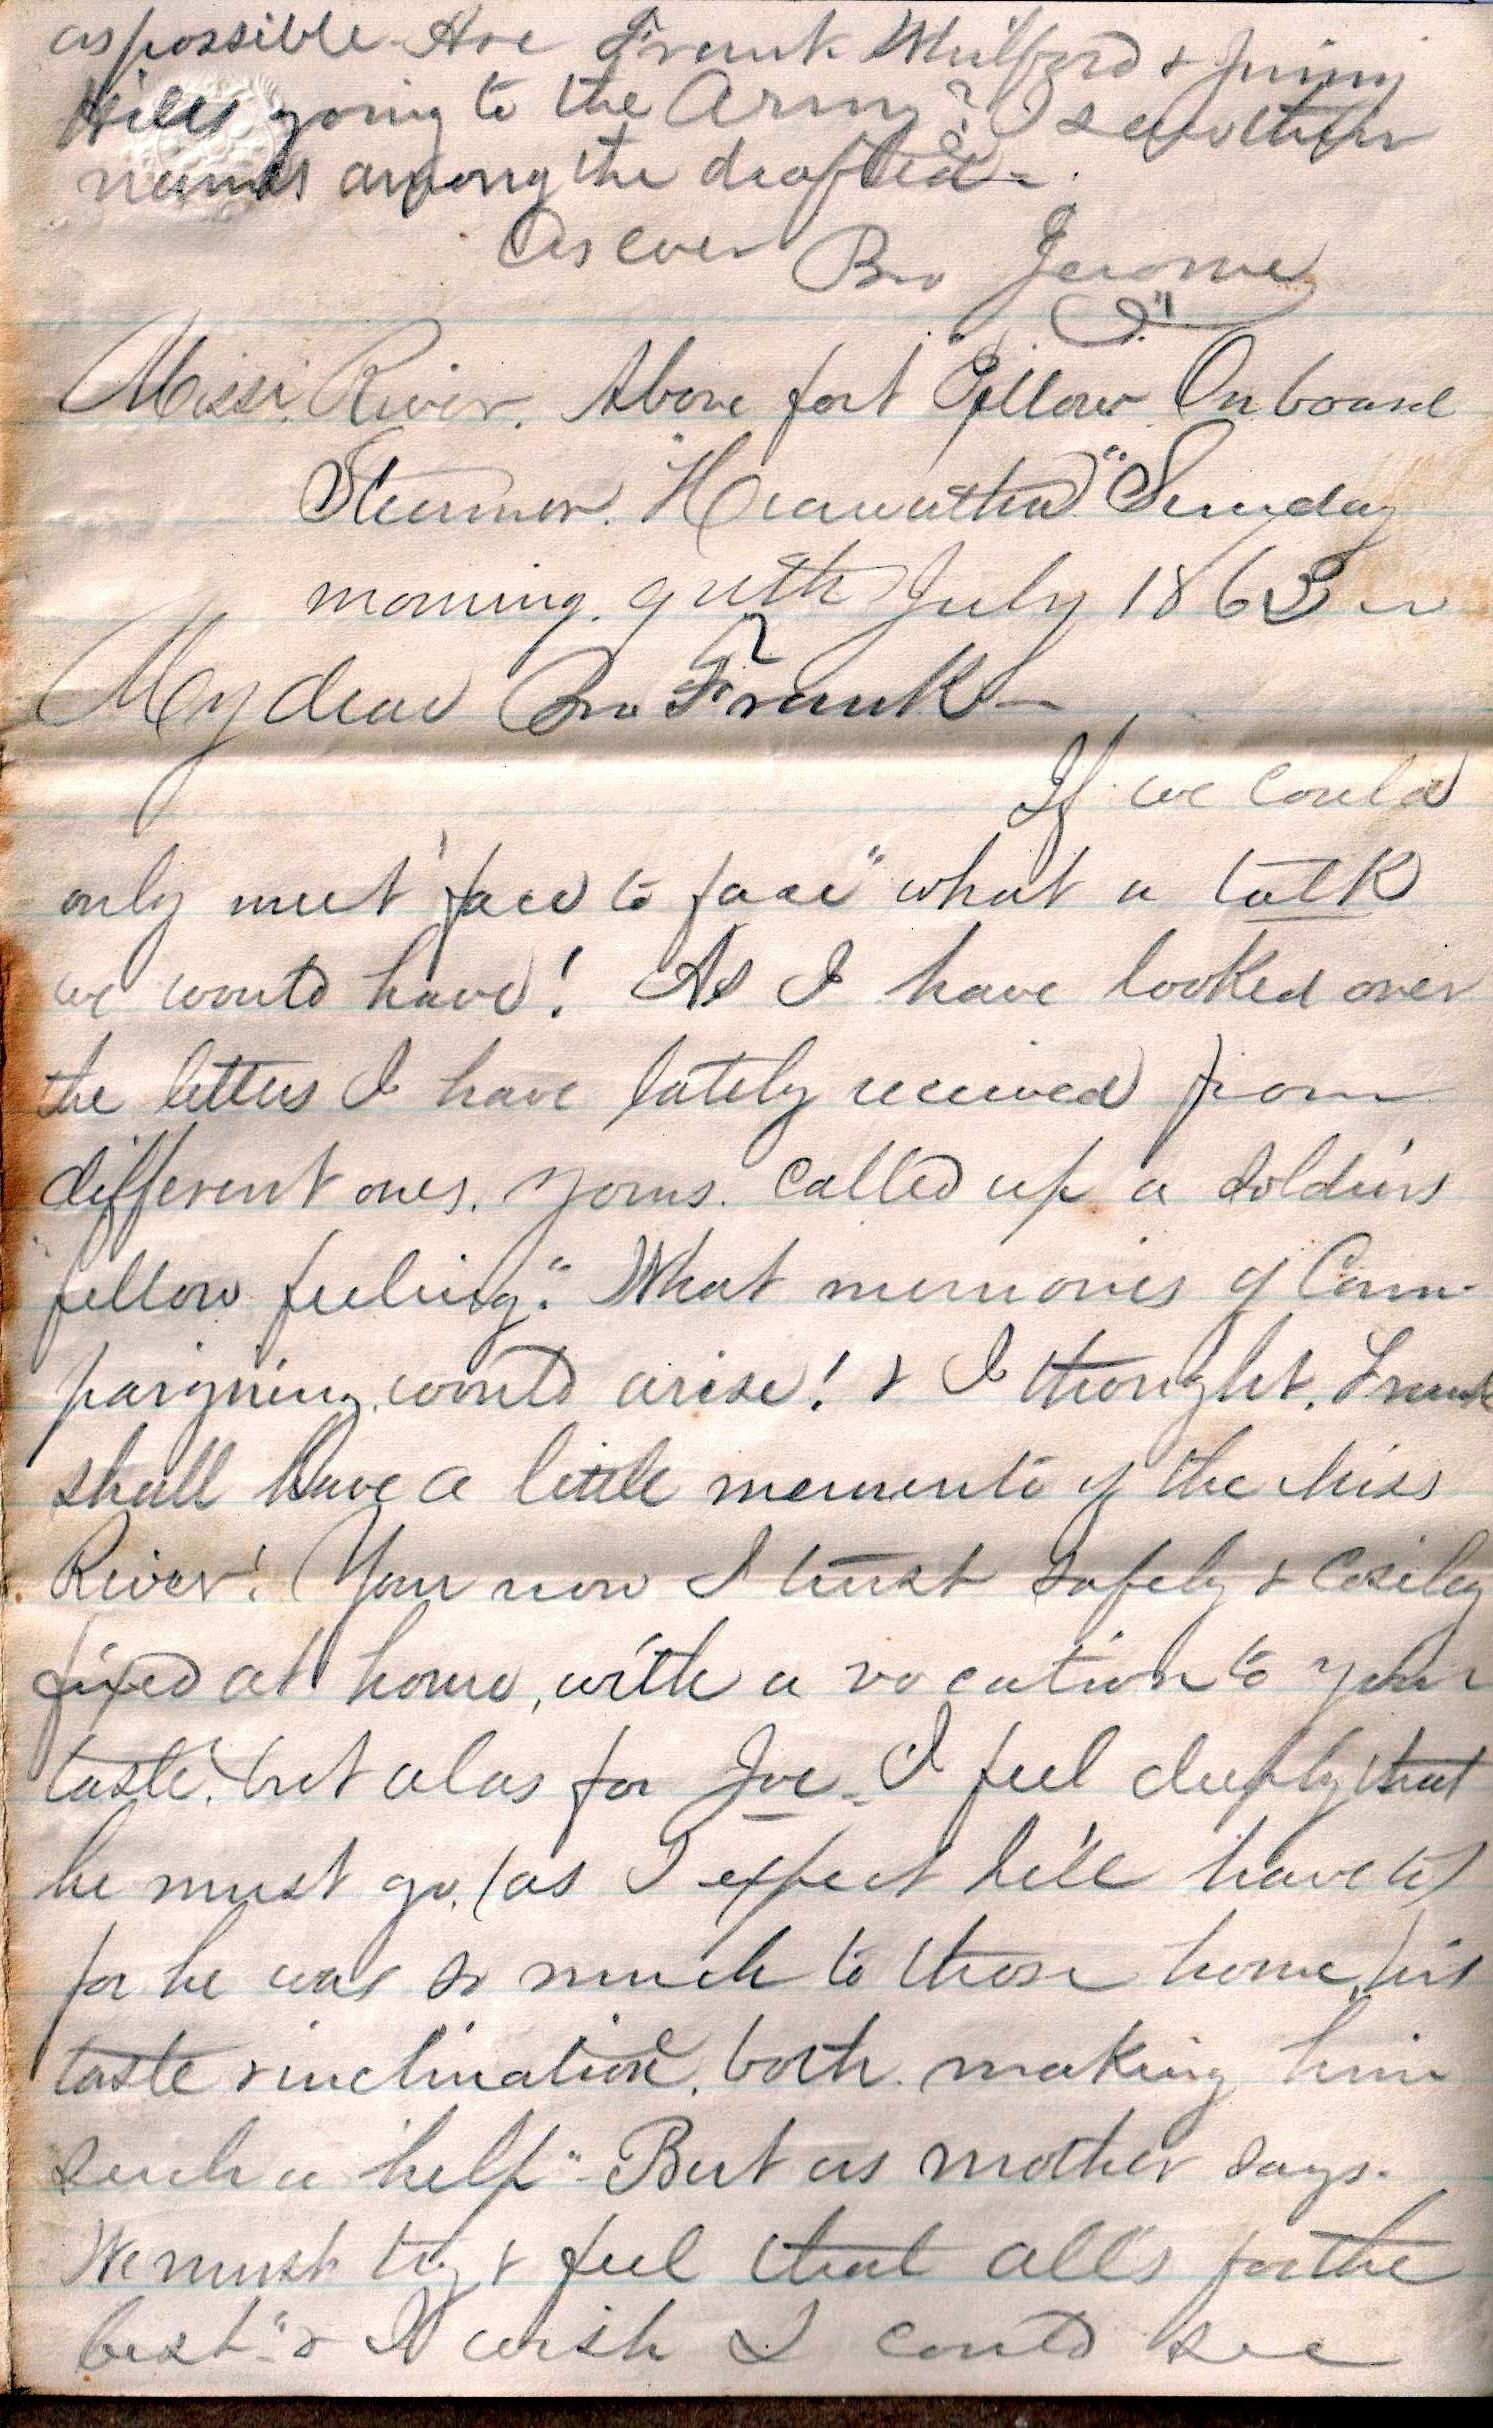 as possible Are Frank Mulford & Jimmy
Hills going to the Army? I see their
names among the drafted -
As ever Bro Jerome
Missi. River. Above fort Pillow On board
Steamer. "Hiawatha" Sunday
morning. July 1863
My dear Bro Frank -
If we could
only meet "face to face" what a talk
we would have! As I have looked over
the letters I have lately received from
different ones. Yours. called up a soldiers
fellow feeling". What memories of Cam-
paigning. would arise! & I thought. Frank
shall have a little memento of the Miss
River! You now I trust safely & cosiley
fixed at home, with a vocation to your
taste. but alas for Joe - I feel deeply that
he must go. (as I expect he'll have to)
for he was so much to those home, his
taste & inclination. both. making him
such a "help" - But as mother says.
We must try & feel that all's for the
best" - & I wish I could see